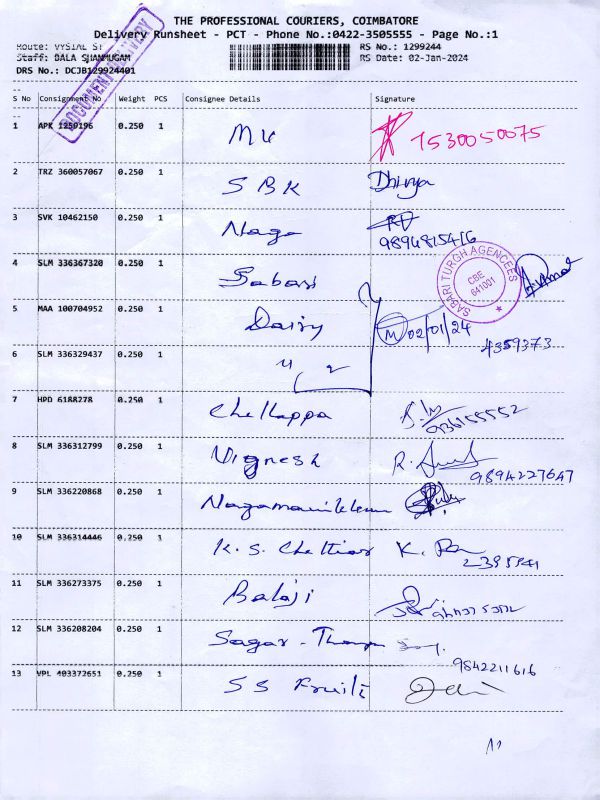 THE PROFESSIONAL COURIERS, COIMBATORE
Delivery Runsheet - PCT - Phone No.:0422-3505555 - Page No.:1
Route: VYSIAL ST
RS No.: 1299244
Staff: BALA SHANMUGAM
RS Date: 02-Jan-2024
DRS No.: DCJB129924401
DOCUMENT DELIVERY
S No Consignment No Weight PCS Consignee Details Signature
1 APK 1259196 0.250 1 7530050075
2 TRZ 360057067 0.250 1 SBK Dhivya
3 SVK 10462150 0.250 1 Naga
9894815416
4 SLM 336367320 0.250 1 Sabari
SABARI TURGH AGENCEES
CBE
641001
5 MAA 100704952 0.250 1 Dairy M 02/01/24
4359373
6 SLM 336329437 0.250 1 "
7 HPD 6188278 0.250 1 Chellappa
8 SLM 336312799 0.250 1 Vignesh
9894227647
9 SLM 336220868 0.250 1
10 SLM 336314446 0.250 1 K. S. Chettiar
11 SLM 336273375 0.250 1 Balaji
12 SLM 336208204 0.250 1 Sagar
9842211616
13 VPL 403372651 0.250 1 SS Fruits